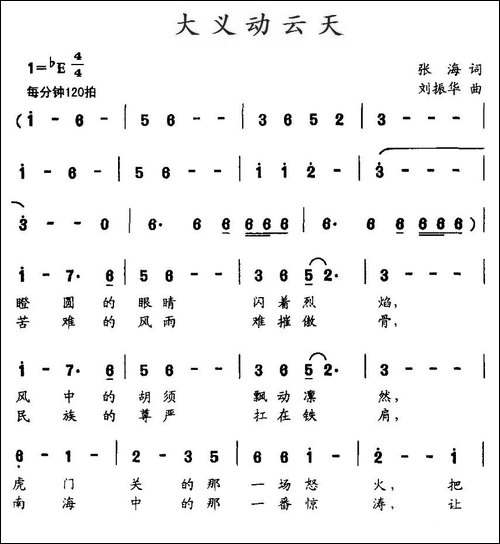 大义动云天
1=♭E 4/4
张海 词
每分钟120拍
刘振华 曲
(i - 6 - | 5 6 - - | 3 6 5 2 | 3 - - - |
i - 6 - | 5 6 - - | i i 2 - | 3 - - -
3 - - 0 | 6· 6 6 666 | 6· 6 6 666) |
i - 7· 6 | 5 6 - - | 3 6 5 2· | 3 - - - |
瞪圆的眼睛 闪着烈焰，
苦难的风雨 难摧傲骨，
i - 7· 6 | 5 6 - - | 3 6 5 2· | 3 - - - |
风中的胡须 飘动凛然，
民族的尊严 扛在铁肩，
6 - 1 - | 2 - 3 5 | 6 6 i - | 2 - - i |
虎门关的那一场怒火，把
南海中的那一番惊涛，让